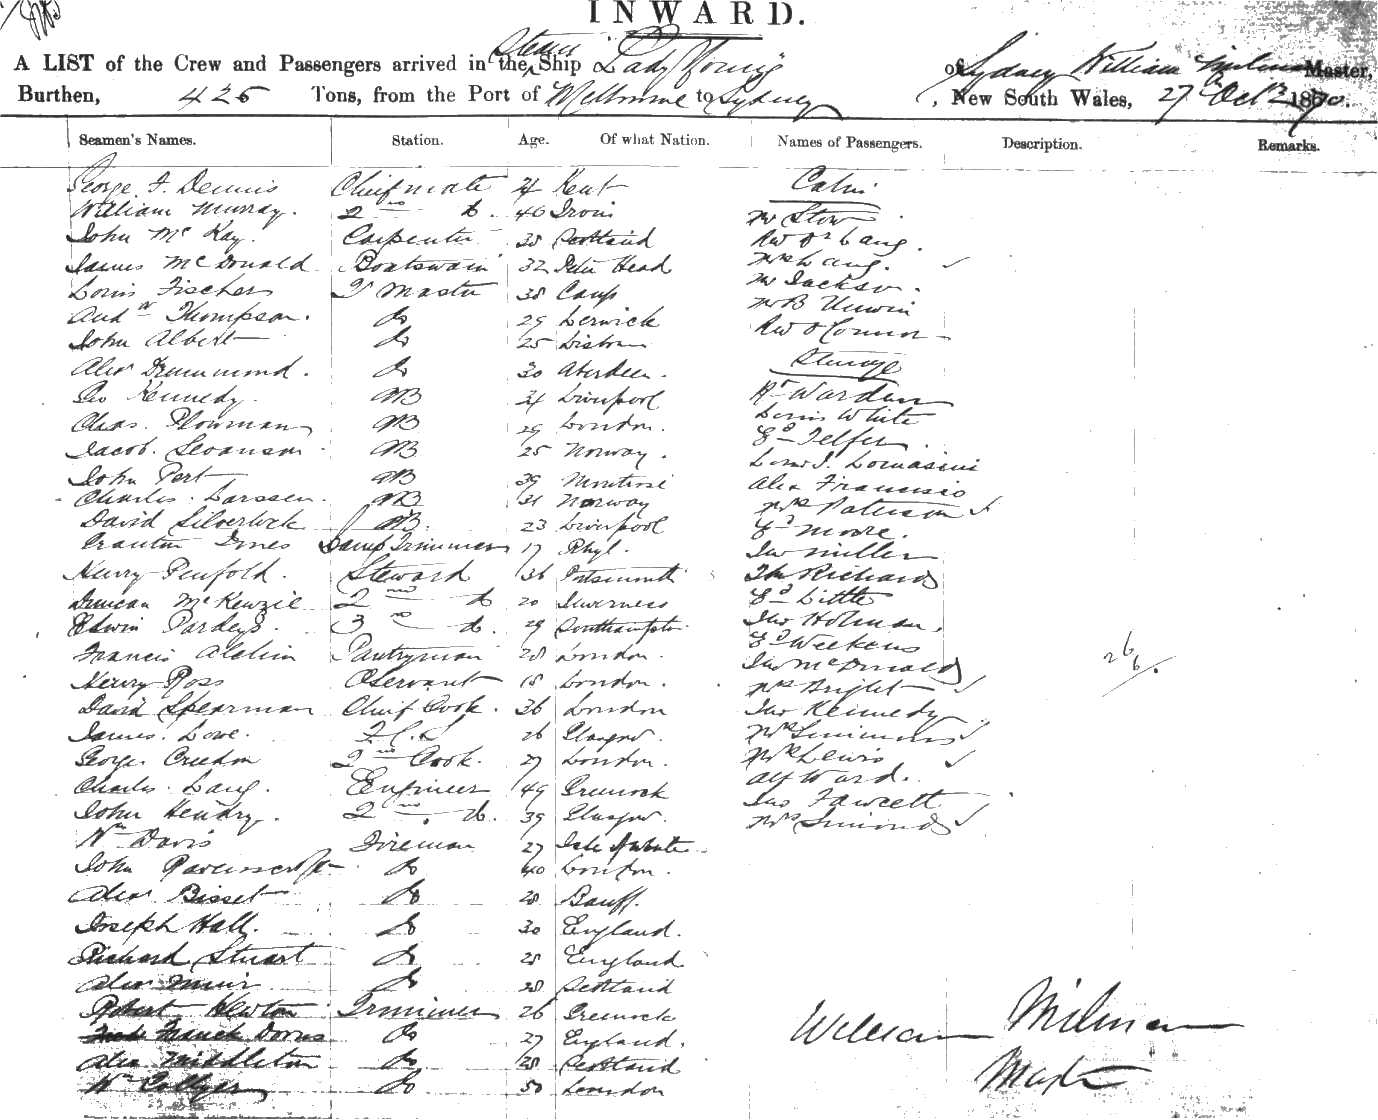 INWARD.
A LIST of the Crew and Passengers arrived in the Steam Ship Lady Young of Sydney William Milman Master,
Burthen, 425 Tons, from the Port of Melbourne to Sydney, New South Wales, 27 Octr 1870.
Seamen's Names. Station. Age. Of what Nation. Names of Passengers. Description. Remarks.
George F. Dennis Chief mate Kent Cabin
William Murray. 2nd do. 40 Mr Stow
John McKay. Carpenter 38 Scotland Rev Dr Lang.
James McDonald Boatswain 32 Peter Head Mrs Lang.
Louis Fischer Master 38 Mr Jackson.
Andw Thompson. do 29 Lerwick Mr B Unwin
John Albert do 25 Lisbon Rev O'Connor
Alexr Drummond. do 30 Aberdeen. Steerage
Geo Kennedy. AB Liverpool Warden
Chas. Plowman AB 29 London. Louis White
Jacob. Swanson AB 25 Norway. Ed Telfer.
John Pert AB 39 Montrose
Charles. Larssen. AB 31 Norway Alex Francisco
David Silverlock AB. 23 Liverpool Mrs Paterson
Innes Lamp Trimmer 17 Rhyl. Ed Moore.
Henry Penfold. Steward 36 Portsmouth Jno Miller
Duncan McKenzie 2nd do 20 Inverness Thos Richards
Edwin Pardey 3rd do. 29 Southampton. Ed Little
Francis Alchin Pantryman 28 London. Jno Holman.
Henry Ross Servant 18 London. Ed Weekens
David Spearman Chief Cook. 36 London Jno McDonald
James. Lowe. 26 Glasgow. Mrs Bright
George Creedon 2nd Cook. 27 London. Jno Kennedy
Charles. Lang. Engineer 49 Greenock Mrs Simmons
John Hendry. 2nd do. 39 Glasgow. Mrs Lewis
Wm Davis Fireman 27 Isle of White Alf Ward.
John Ravenscroft do 40 London. Jas Fawcett
Alexr Bisset do 28 Banff. Mrs Simonds
Joseph Hall. do 30 England. 26/6.
Richard Stuart do 28 England
Alexr Muir do 28 Scotland
Robert Newton Trimmer 26 Greenock
Franck do 27 England.
Alex Middleton do 28 Scotland
Wm Collyer do 50 London
William Milman
Master